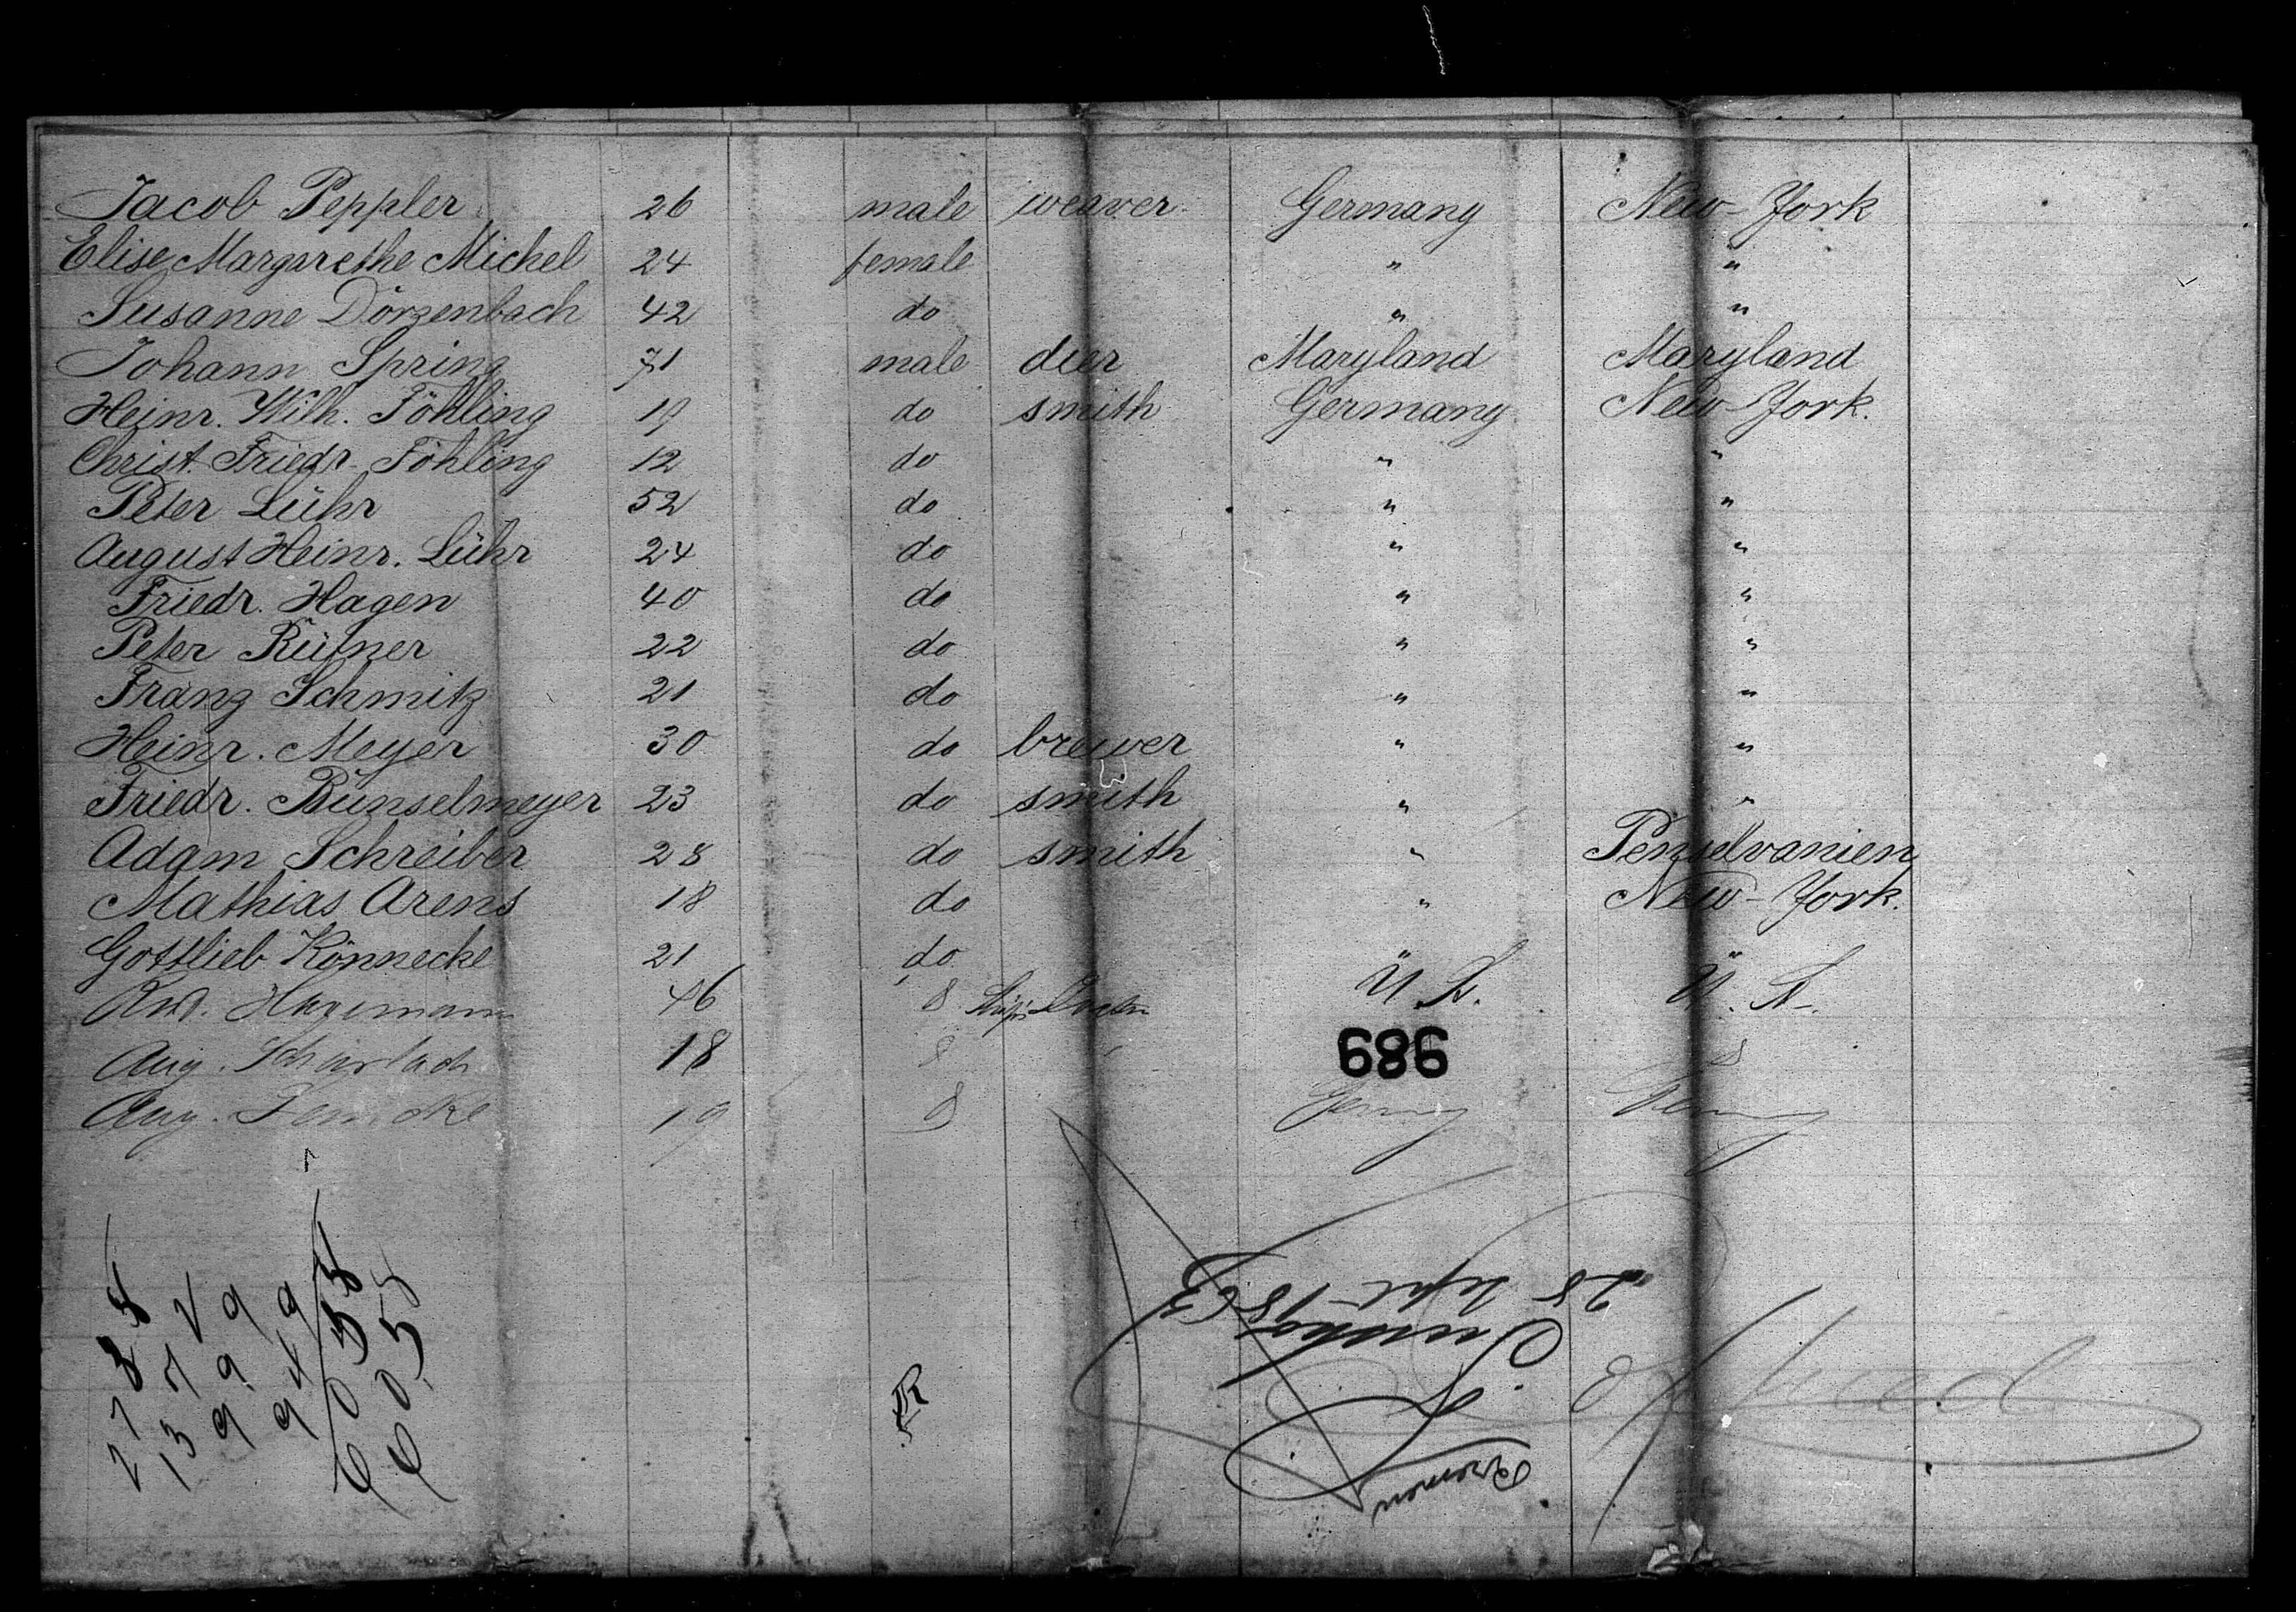 Jacob Peppler 26 male weaver Germany New-York
Elise Margarethe Michel 24 female " "
Susanne Dörzenbach 42 do " "
Johann Spring 71 male dier Maryland Maryland
Heinr. Wilh. Föhling 19 do smith Germany New-York.
Christ. Friedr. Föhling 12 do " "
Peter Lühr 52 do " "
August Heinr. Lühr 24 do " "
Friedr. Hagen 40 do " "
Peter Rütner 22 do " "
Franz Schmitz 21 do " "
Heinr. Meyer 30 do brewer " "
Friedr. Bünselmeyer 23 do smith " "
Adam Schreiber 28 do smith " Penselvanien
Mathias Arens 18 do " New-York.
Gottlieb Könnecke 21 do " "
Hagemann 46 U.S. U.S.
Aug. Scharlach 18
689
Aug. 19 Germy Germy
28 Sept 1863
Bremen
R